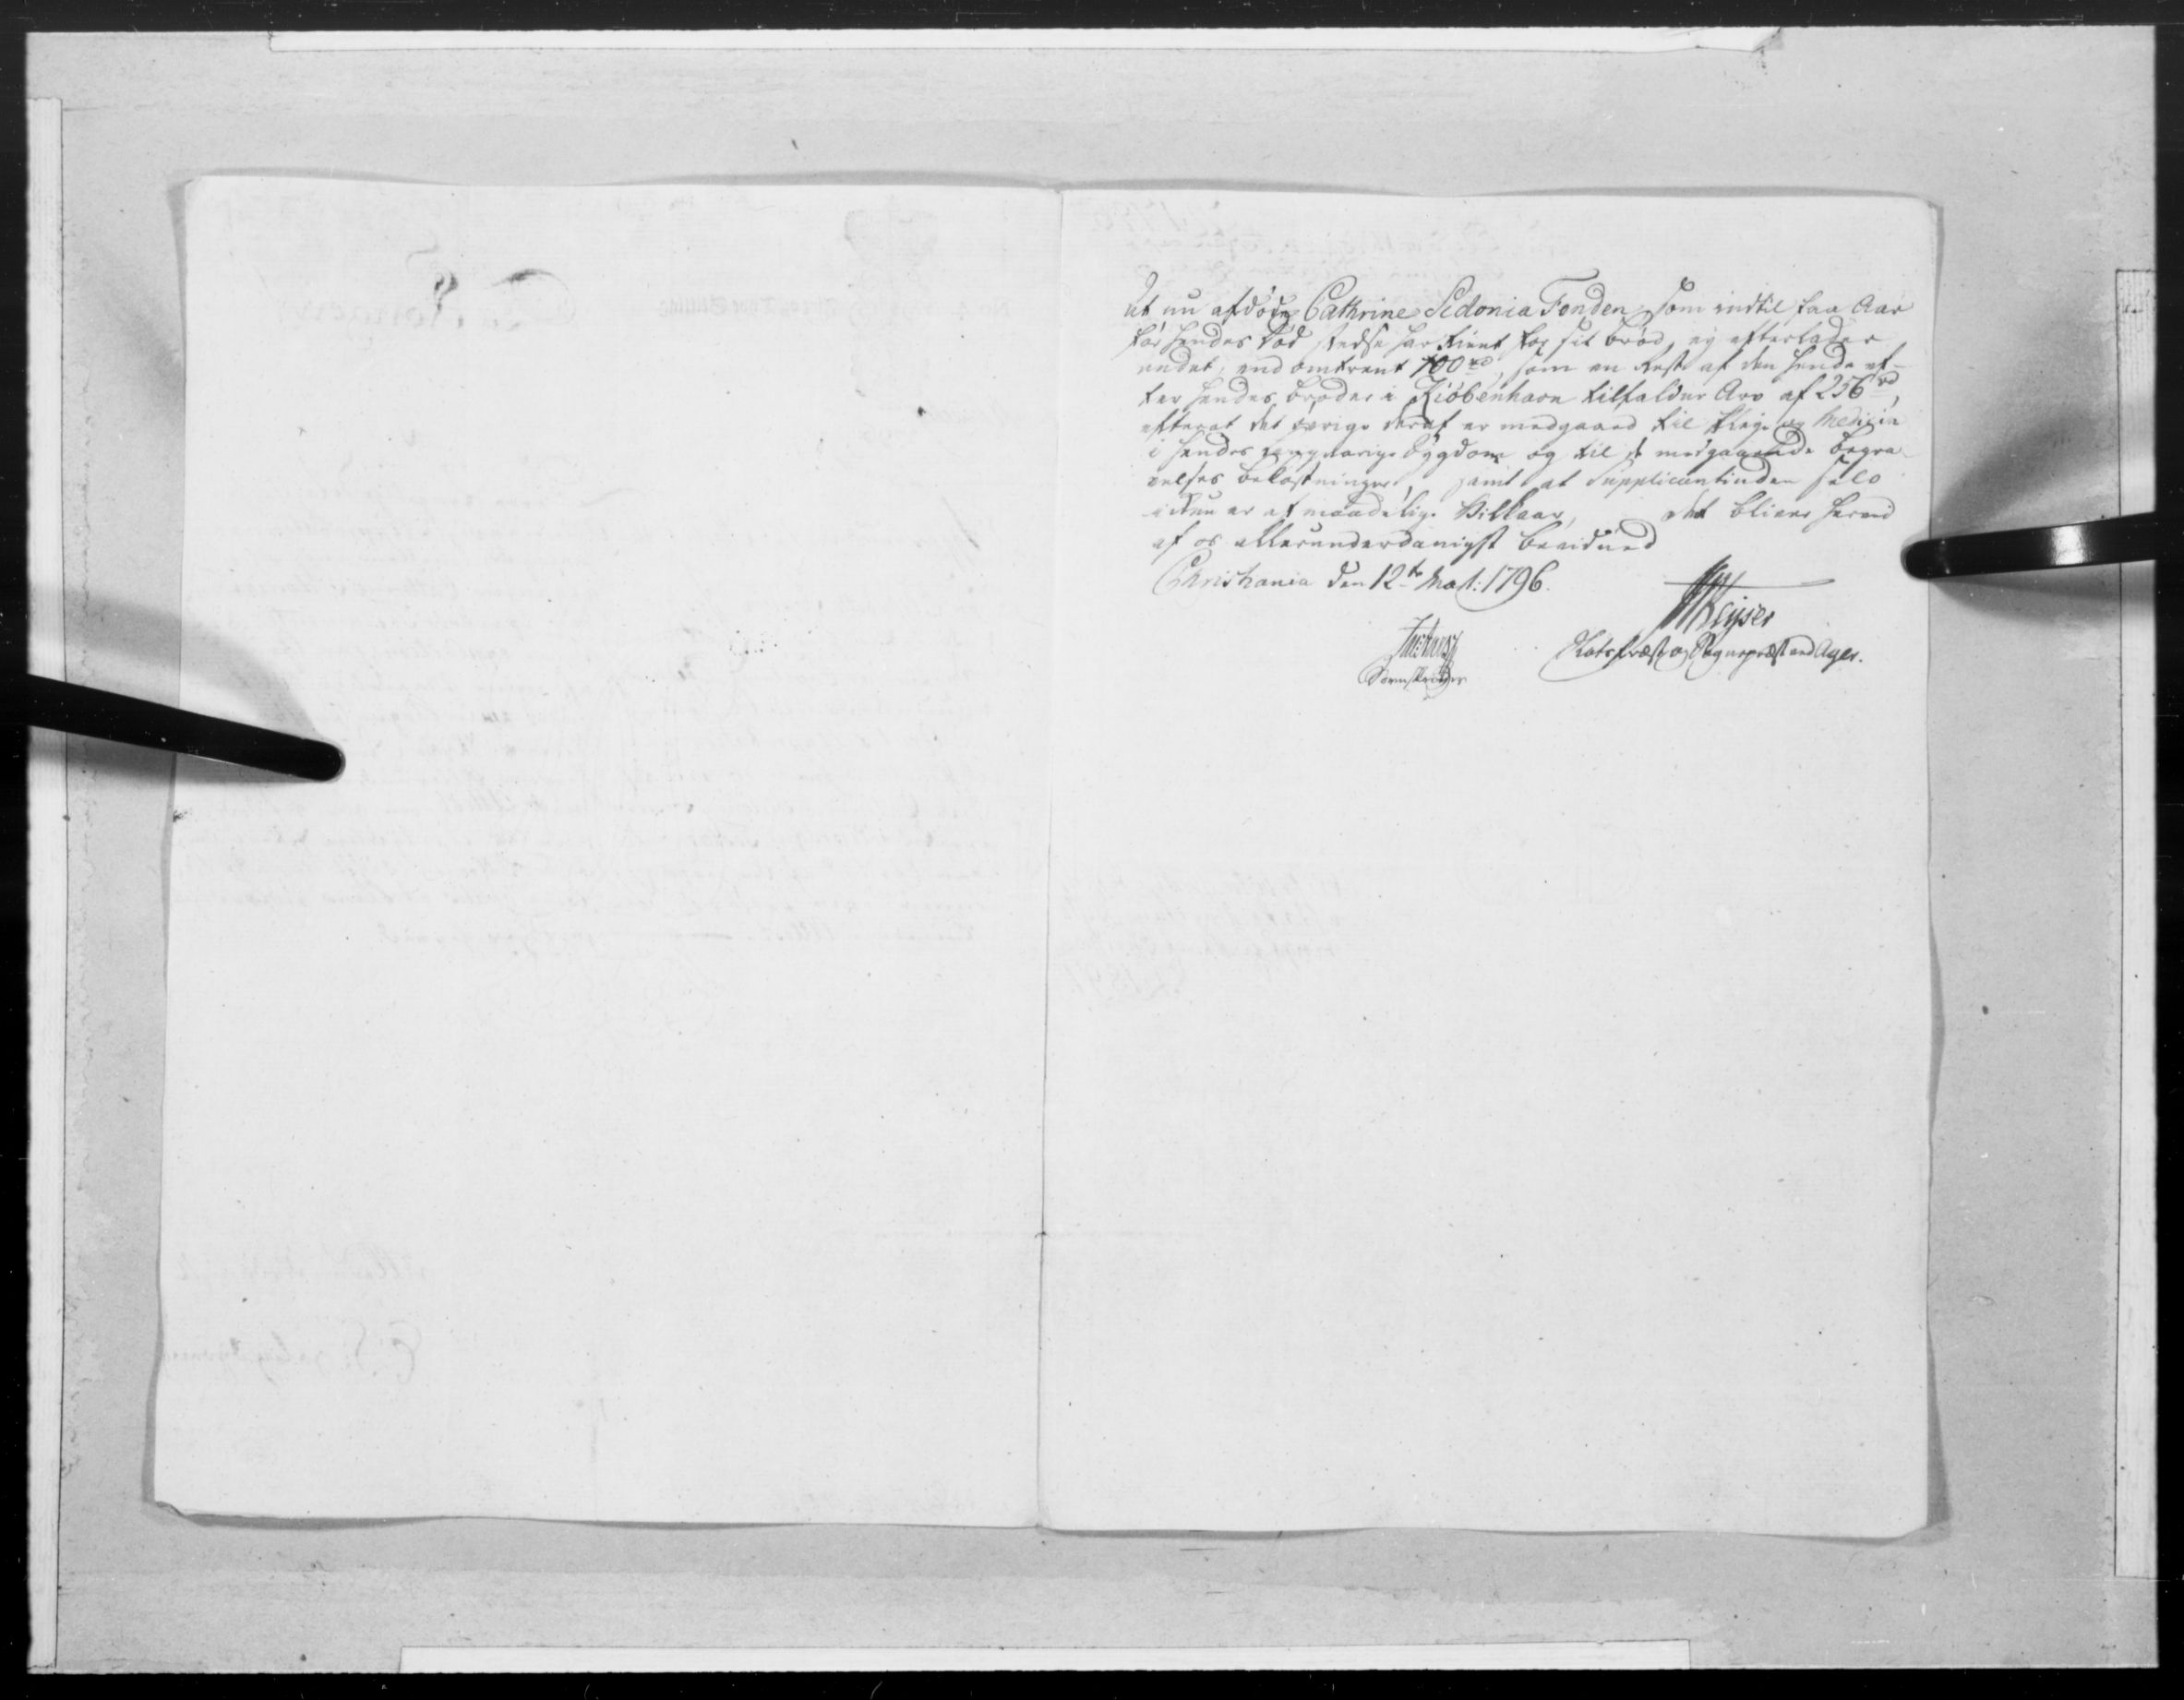 At nu afdøde Cathrine Sidonia Fonden, som indtil faa Aar
før hendes død stedse har tient for sit brød, ey efterlader
andet, end omtrent 100 rd, som en Rest af den hende ef-
ter hendes broder i Kiøbenhavn tilfaldne Arv af 256 rd,
efterat det øvrige deraf er medgaaed til Pleje og Medicin
i hendes langvarige Sygdom og til medgaaende begra-
velses bekostninger, samt at Supplicantinden selv
ikkun er af maadelige Villkaar, det bliver herved
af os allerunderdanigst bevidned
Christiania den 12te Maj: 1796.
Keyser
Sorenskriver
Slotspræst og Sognepræst ved Ager.